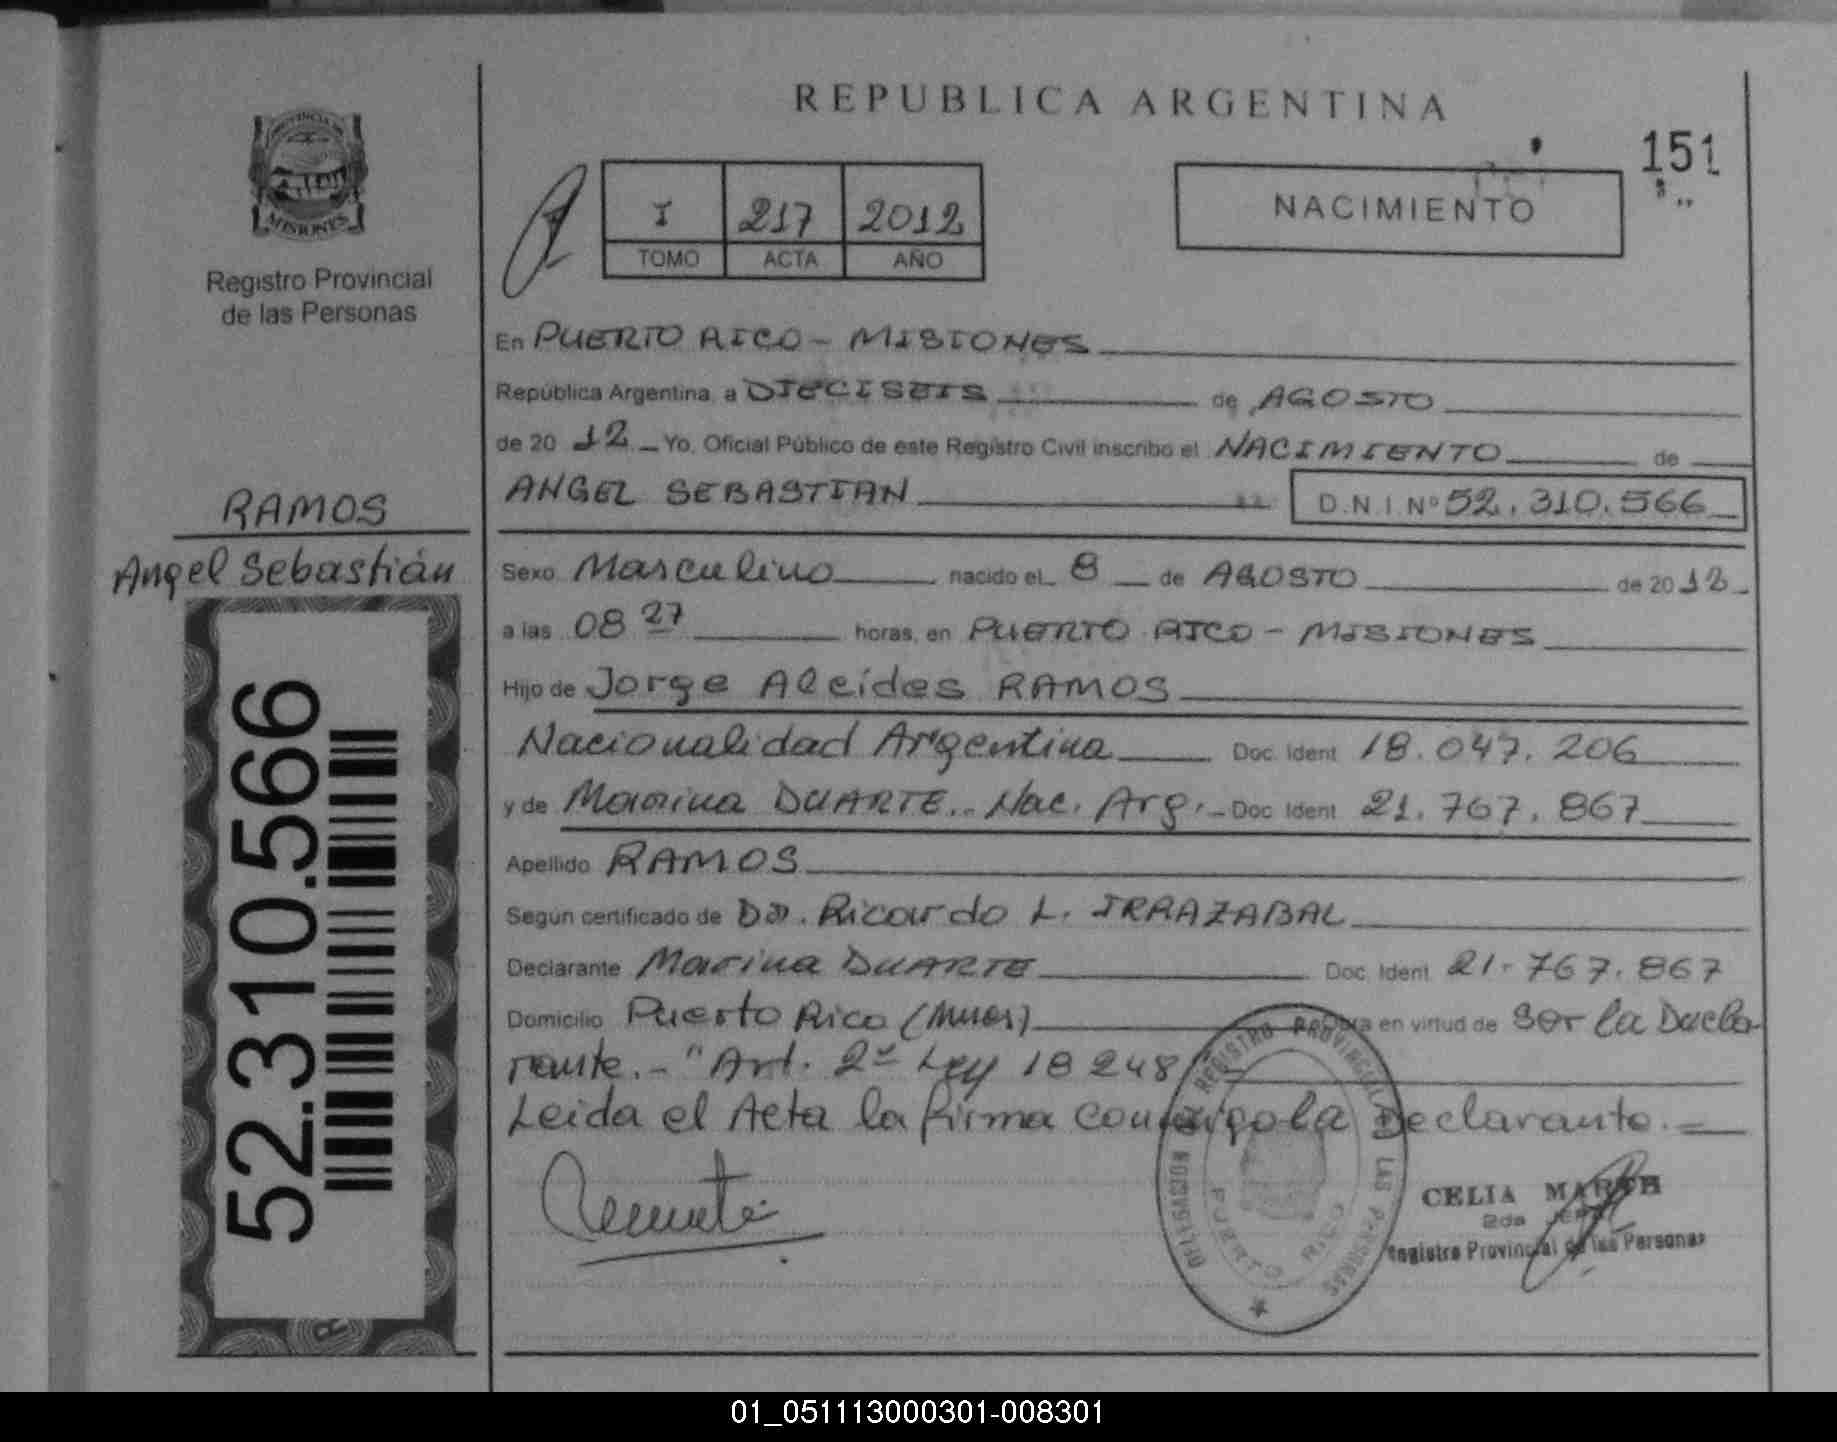 REPUBLICA ARGENTINA
151
PROVINCIA DE
MISIONES
Registro Provincial
de las Personas
I 217 2012
TOMO ACTA AÑO
NACIMIENTO
En PUERTO RICO - MISIONES
República Argentina, a DIECISEIS de AGOSTO
de 20 12 Yo, Oficial Público de este Registro Civil inscribo el NACIMIENTO de
ANGEL SEBASTIAN D.N.I. Nº 52.310.566
RAMOS
Angel Sebastián
52.310.566
Sexo Masculino nacido el 8 de AGOSTO de 2012
a las 08 27 horas, en PUERTO RICO - MISIONES
Hijo de Jorge Alcides RAMOS
Nacionalidad Argentina Doc. Ident. 18.047.206
y de Marina DUARTE.- Nac. Arg.- Doc. Ident. 21.767.867
Apellido RAMOS
Según certificado de Dr. Ricardo L. IRRAZABAL
Declarante Marina DUARTE Doc. Ident. 21.767.867
Domicilio Puerto Rico (Mnes) Obra en virtud de Ser la Decla-
rante.- "Art. 2º Ley 18248
Leida el Acta la firma conmigo la Declarante.=
DELEGACION REGISTRO PROVINCIAL DE LAS PERSONAS
PUERTO RICO
CELIA MARCH
2da Jefe
Registro Provincial de las Personas
01_051113000301-008301